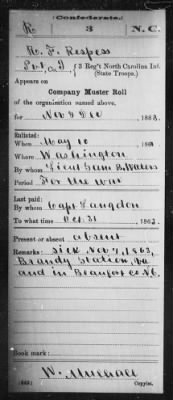 (Confederate.)
R 3 N.C.
R. F. Respess
Pvt, Co. I, 3 Reg't North Carolina Inf.
(State Troops.)
Appears on
Company Muster Roll
of the organization named above,
for Nov & Dec, 1863.
Enlisted:
When May 10, 186
Where Washington
By whom Lieut Sam B. Waters
Period For the war
Last paid:
By whom Capt Langdon
To what time Oct. 31, 1863.
Present or absent absent
Remarks: Sick Nov 7, 1863,
Brandy Station, Va
and in Beaufort Co. N.C.
Book mark:
W. Wallace
Copyist.